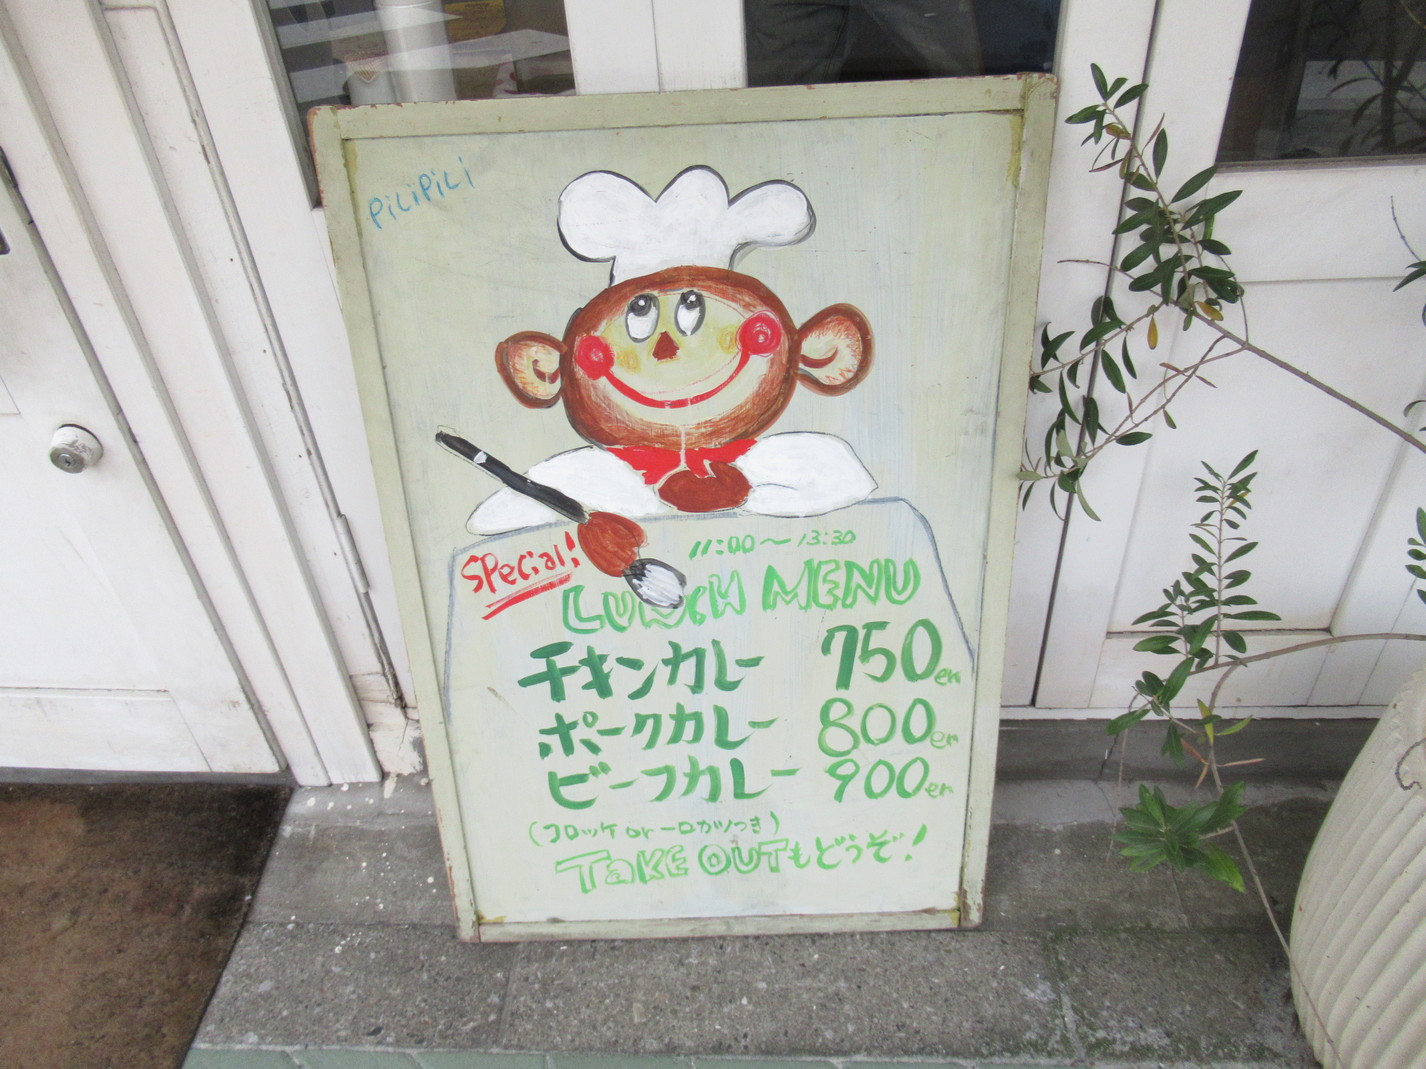 PiLiPiLi
11:00～13:30
SPecial!
LUNcH MENU
チキンカレー 750en
ポークカレー 800en
ビーフカレー 900en
(コロッケ or 一ロカツつき)
TaKE OUTもどうぞ!